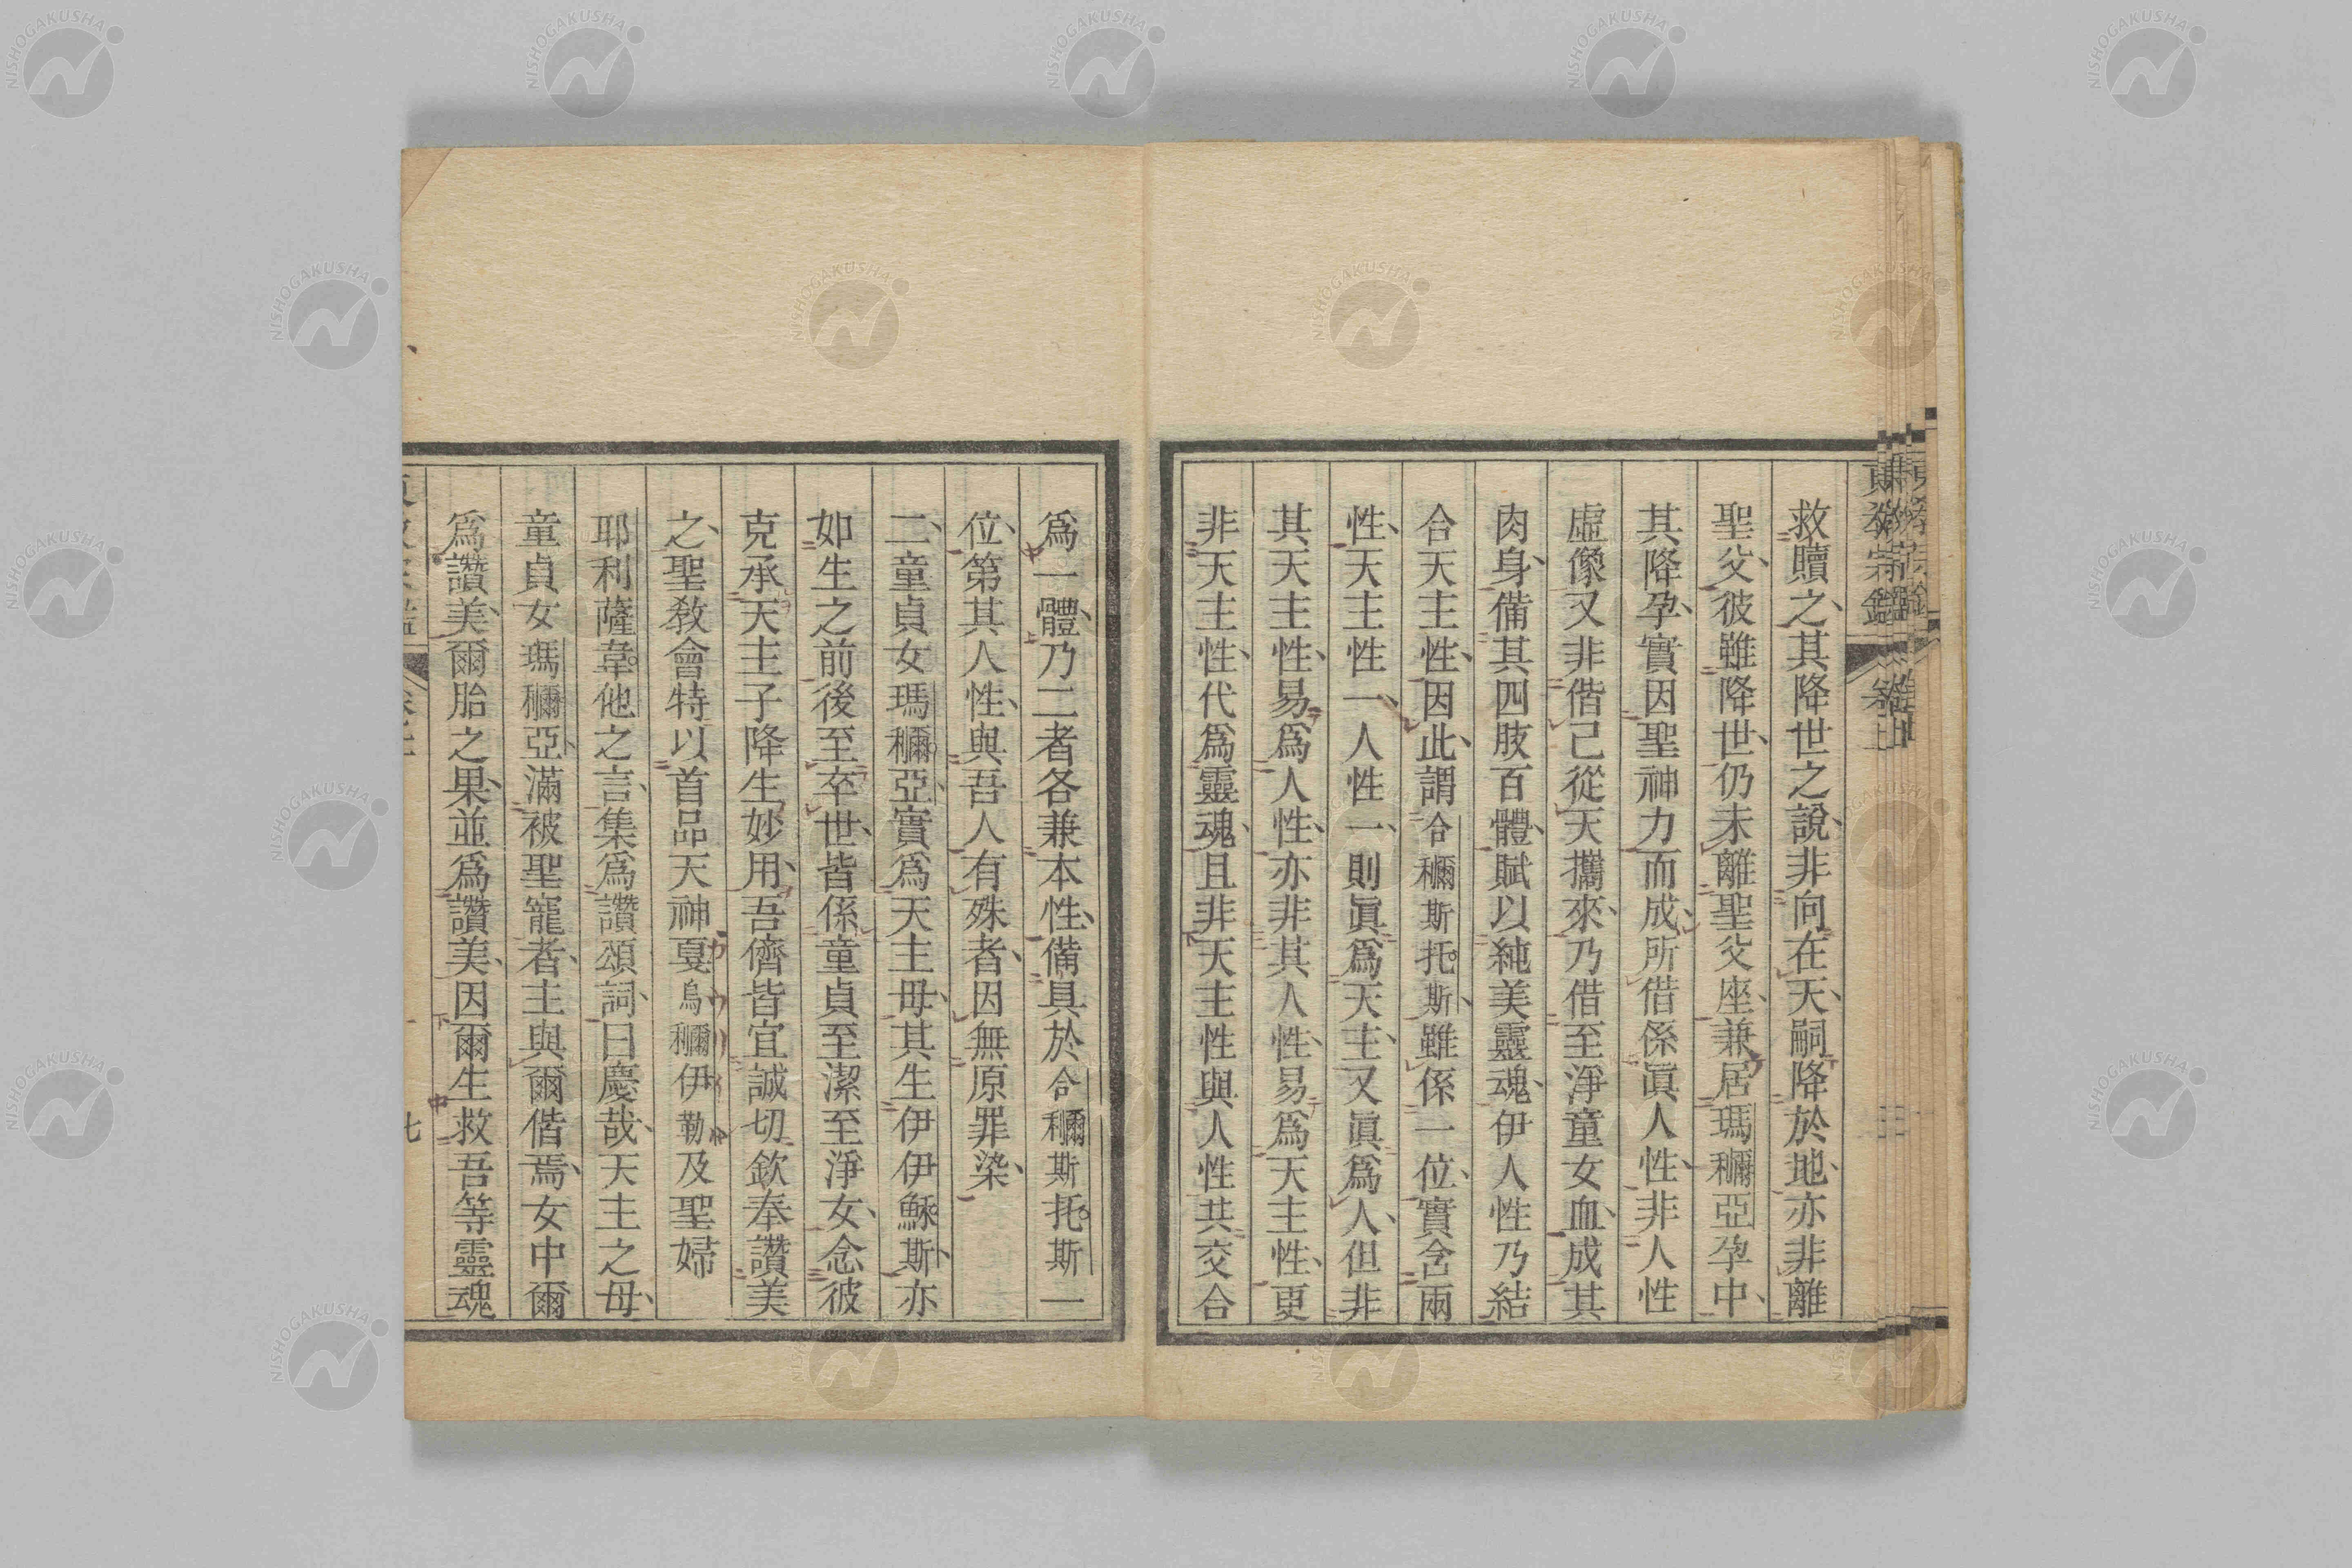 救贖之、其降世之說、非向在天、嗣降於地、亦非離
聖父、彼雖降世、仍未離聖父座、兼居瑪穪亞孕中、
其降孕、實因聖神力而成、所借係眞人性、非人性
虛像、又非偕己從天攜來、乃借至淨童女血、成其
肉身、備其四肢百體、賦以純美靈魂、伊人性乃結
合天主性、因此謂合穪斯托斯、雖係一位、實含兩
性、天主性一、人性一、則眞爲天主、又眞爲人、但非
其天主性、易爲人性、亦非其人性、易爲天主性、更
非天主性、代爲靈魂、且非天主性與人性共交合
爲一體、乃二者各兼本性、備具於合穪斯托斯一
位、第其人性、與吾人有殊者、因無原罪染、
二、童貞女瑪穪亞、實爲天主母、其生伊伊穌斯、亦
如生之前後至卒世、皆係童貞至潔至淨女、念彼
克承天主子降生妙用、吾儕皆宜誠切欽奉讚美
之、聖敎會特以首品天神戛烏穪伊勒及聖婦
耶利薩韋他之言、集爲讚頌詞、曰慶哉、天主之母、
童貞女瑪穪亞、滿被聖寵者、主與爾偕焉、女中爾
爲讚美、爾胎之果、並爲讚美、因爾生救吾等靈魂
七
NISHOGAKUSHA